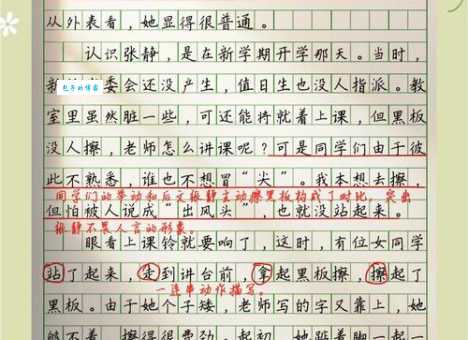 从外表看，她显得很普通。
认识张静，是在新学期开学那天。当时，
新 委会还没产生，值日生也没人指派。教
包子的博客
室里虽然脏一些，可还能将就着上课，但黑板
没人擦，老师怎么讲课呢？可是同学们由于彼
此不熟悉，谁也不想冒“尖”。我本想去擦，
同学们的举动和后文张静主动擦黑板构成了对比，突出
但怕被人说成“出风头”，也就没站起来。
张静不畏人言的形象。
眼看上课铃就要响了，这时，有位女同学
站了起来，走到讲台前，拿起黑板擦，擦起了
一连串动作描写。
黑板。由于她个子矮，老师写的字又靠上，她
够不着，擦得很费劲。起初，她踮着脚一起一